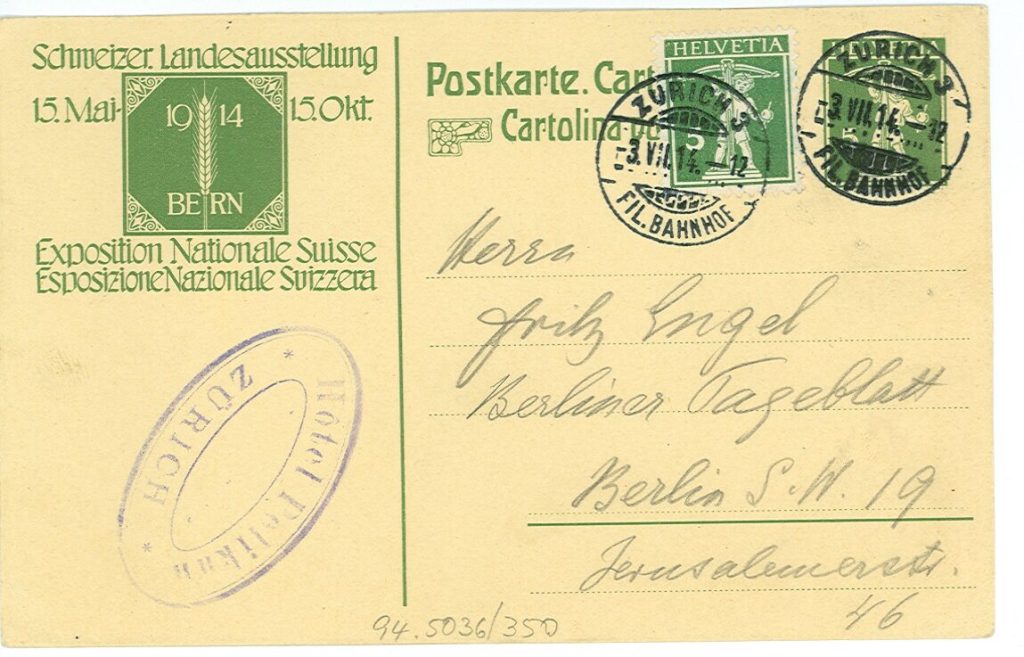 Schweizer. Landesausstellung
15. Mai- 1914 15. Okt.
BERN
Exposition Nationale Suisse
Esposizione Nazionale Svizzera
Postkarte. Cart
Cartolina po
HELVETIA
5
ZÜRICH 3
-3.VII.14.-12
FIL. BAHNHOF
HELVETIA
5
ZÜRICH 3
-3.VII.14.-12
FIL. BAHNHOF
Herrn
Fritz Engel
Berliner Tageblatt
Berlin S.W. 19
Jerusalemerstr.
46
Hotel Pelikan
ZÜRICH
94.5036/350